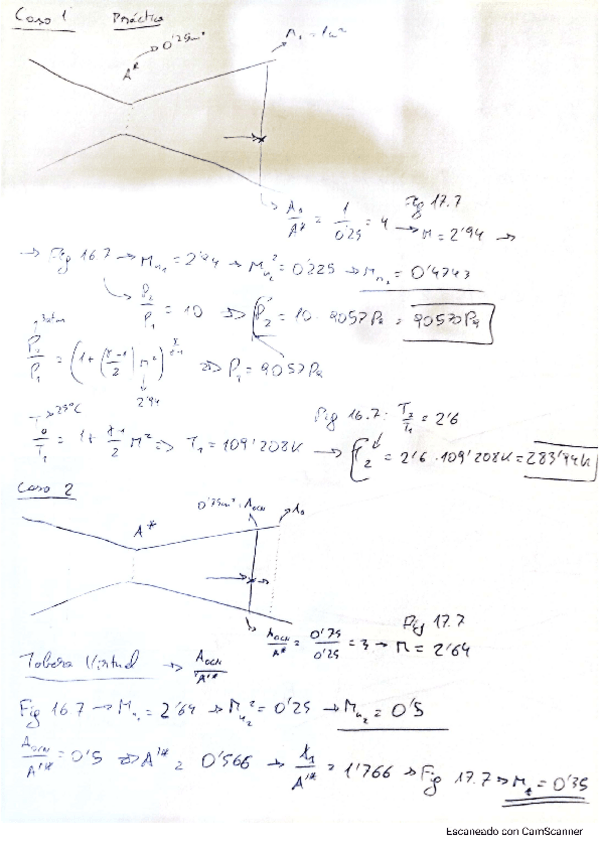 Caso 1 Práctica
A* → 0'25m² A₁ = 1m²
A₁/A* = 1/0'25 = 4 → M = 2'94 →
Fig 17.7
→ Fig 16.7 → Mn₁ = 2'94 → Mn₂² = 0'225 → Mn₂ = 0'4743
P₂/P₁ = 10 ⇒ P₂ = 10 · 9057Pa = 90570Pa
P₀/P₁ = (1 + (γ-1/2) M²)^γ/γ-1 ⇒ P₁ = 9057Pa
2'94
25ºC Fig 16.7: T₂/T₁ = 2'6
T₀/T₁ = 1 + γ-1/2 M² ⇒ T₁ = 109'208K → T₂ = 2'6 · 109'208K = 283'94K
Caso 2
0'75m² = AOCN
A*
AOCN/A* = 0'75/0'25 = 3 → M = 2'64
Fig 17.7
Tobera Virtual → AOCN/A'*
Fig 16.7 → Mn₁ = 2'64 → Mn₂² = 0'25 → Mn₂ = 0'5
AOCN/A'* = 0'5 ⇒ A'* = 0'566 → A₁/A'* = 1'766 → Fig 17.7 → M₁ = 0'35
Escaneado con CamScanner